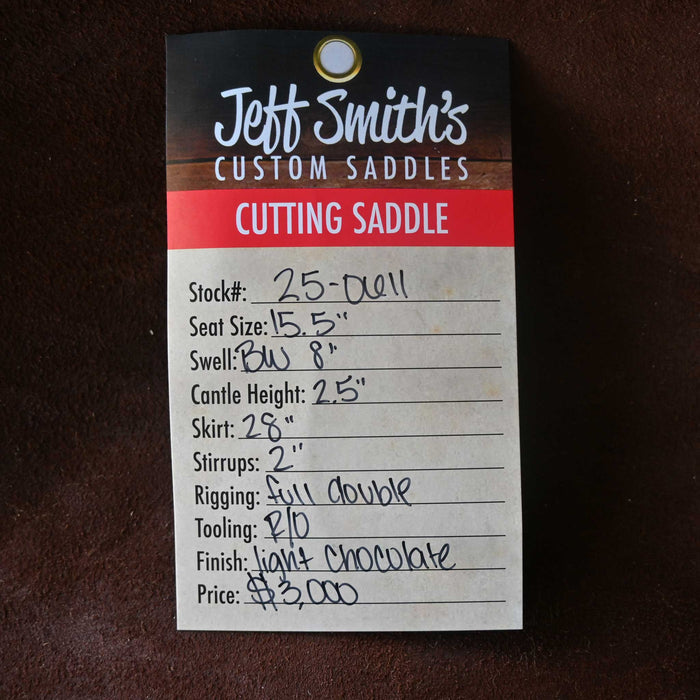 Jeff Smith's
CUSTOM SADDLES
CUTTING SADDLE
Stock#: 25-0611
Seat Size: 15.5"
Swell: BW 8"
Cantle Height: 2.5"
Skirt: 28"
Stirrups: 2"
Rigging: full double
Tooling: R/O
Finish: light chocolate
Price: $3,000